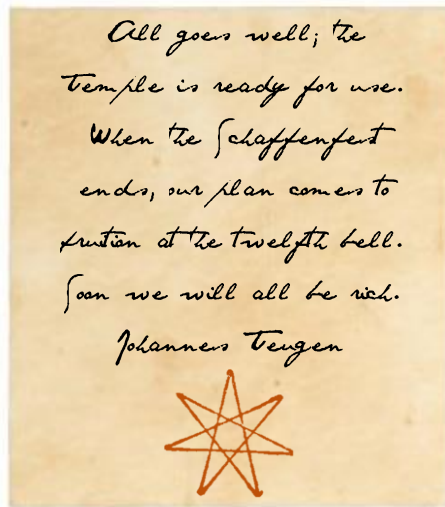 All goes well; the
Temple is ready for use.
When the Schaffenfest
ends, our plan comes to
fruition at the twelfth bell.
Soon we will all be rich.
Johannes Teugen